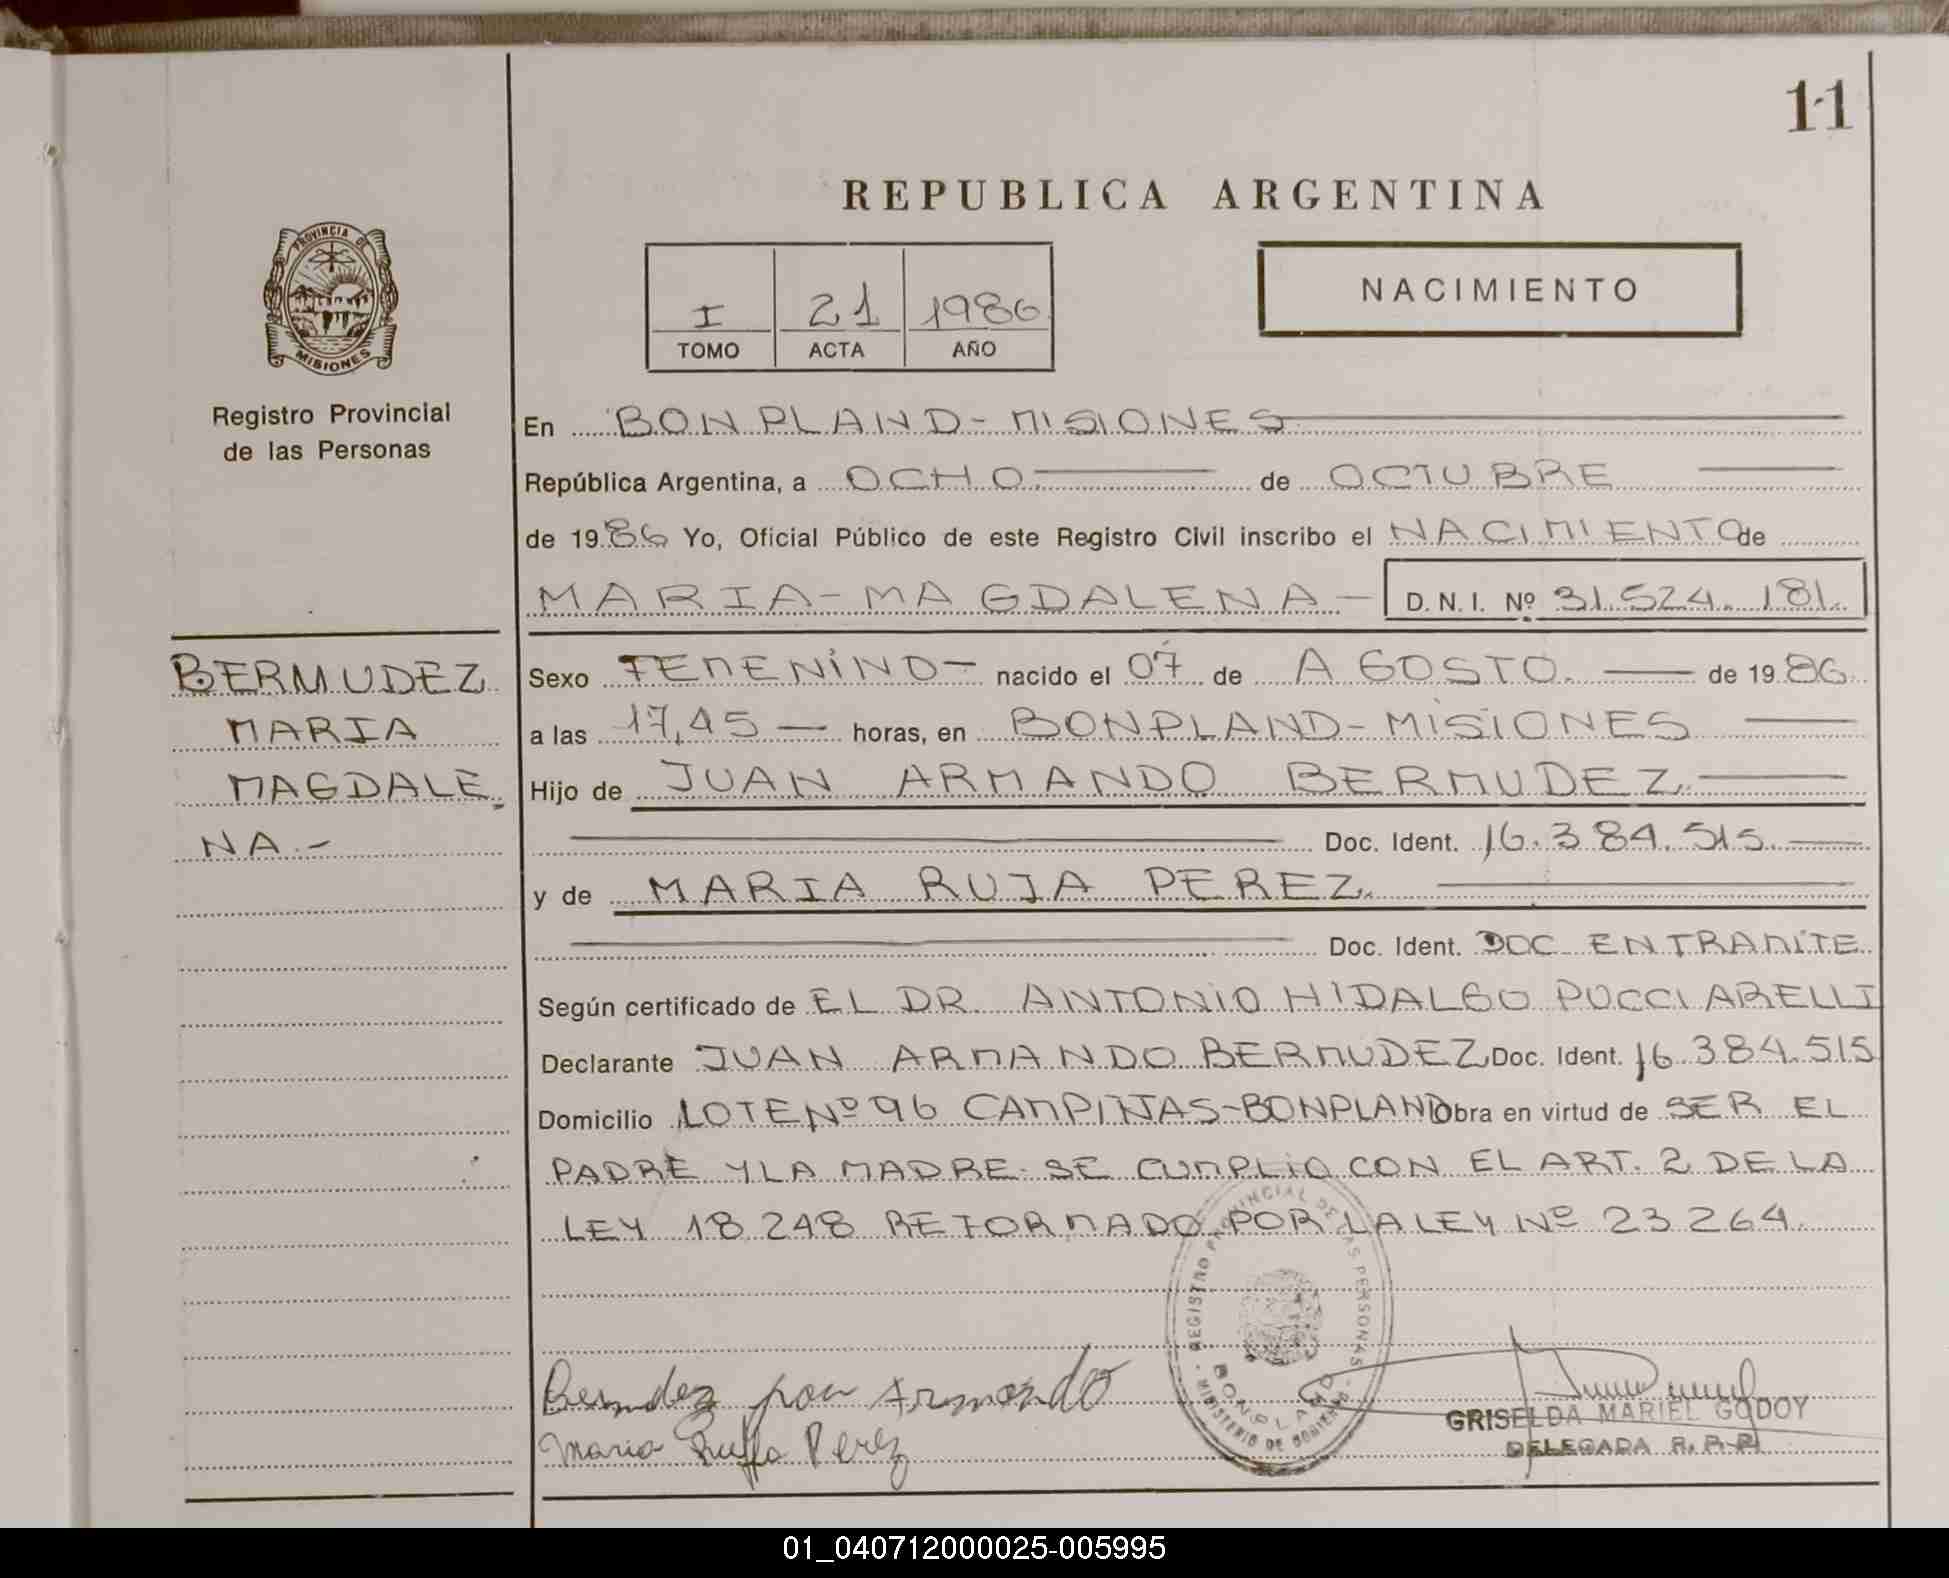 11
REPUBLICA ARGENTINA
PROVINCIA DE
MISIONES
Registro Provincial
de las Personas
I 21 1986
TOMO ACTA AÑO
NACIMIENTO
En BONPLAND - MISIONES
República Argentina, a OCHO de OCTUBRE
de 1986 Yo, Oficial Público de este Registro Civil inscribo el NACIMIENTO de
MARIA - MAGDALENA - D.N.I. Nº 31.524.181.
BERMUDEZ
MARIA
MAGDALE
NA.-
Sexo FEMENINO - nacido el 07 de AGOSTO. de 1986
a las 17,45 — horas, en BONPLAND - MISIONES
Hijo de JUAN ARMANDO BERMUDEZ
Doc. Ident. 16.384.515.
y de MARIA RUJA PEREZ.
Doc. Ident. DOC EN TRAMITE
Según certificado de EL DR. ANTONIO HIDALGO POCCIARELLI
Declarante JUAN ARMANDO BERMUDEZ Doc. Ident. 16.384.515
Domicilio LOTE Nº 96 CAMPINAS - BONPLAND Obra en virtud de SER EL
PADRE Y LA MADRE. SE CUMPLIO CON EL ART. 2 DE LA
LEY 18.248 REFORMADO POR LA LEY Nº 23264.
REGISTRO PROVINCIAL DE LAS PERSONAS
BONPLAND
MINISTERIO DE GOBIERNO
Bermudez Armando
Maria Ruffa Perez
GRISELDA MARIEL GODOY
DELEGADA R. P. P.
01_040712000025-005995